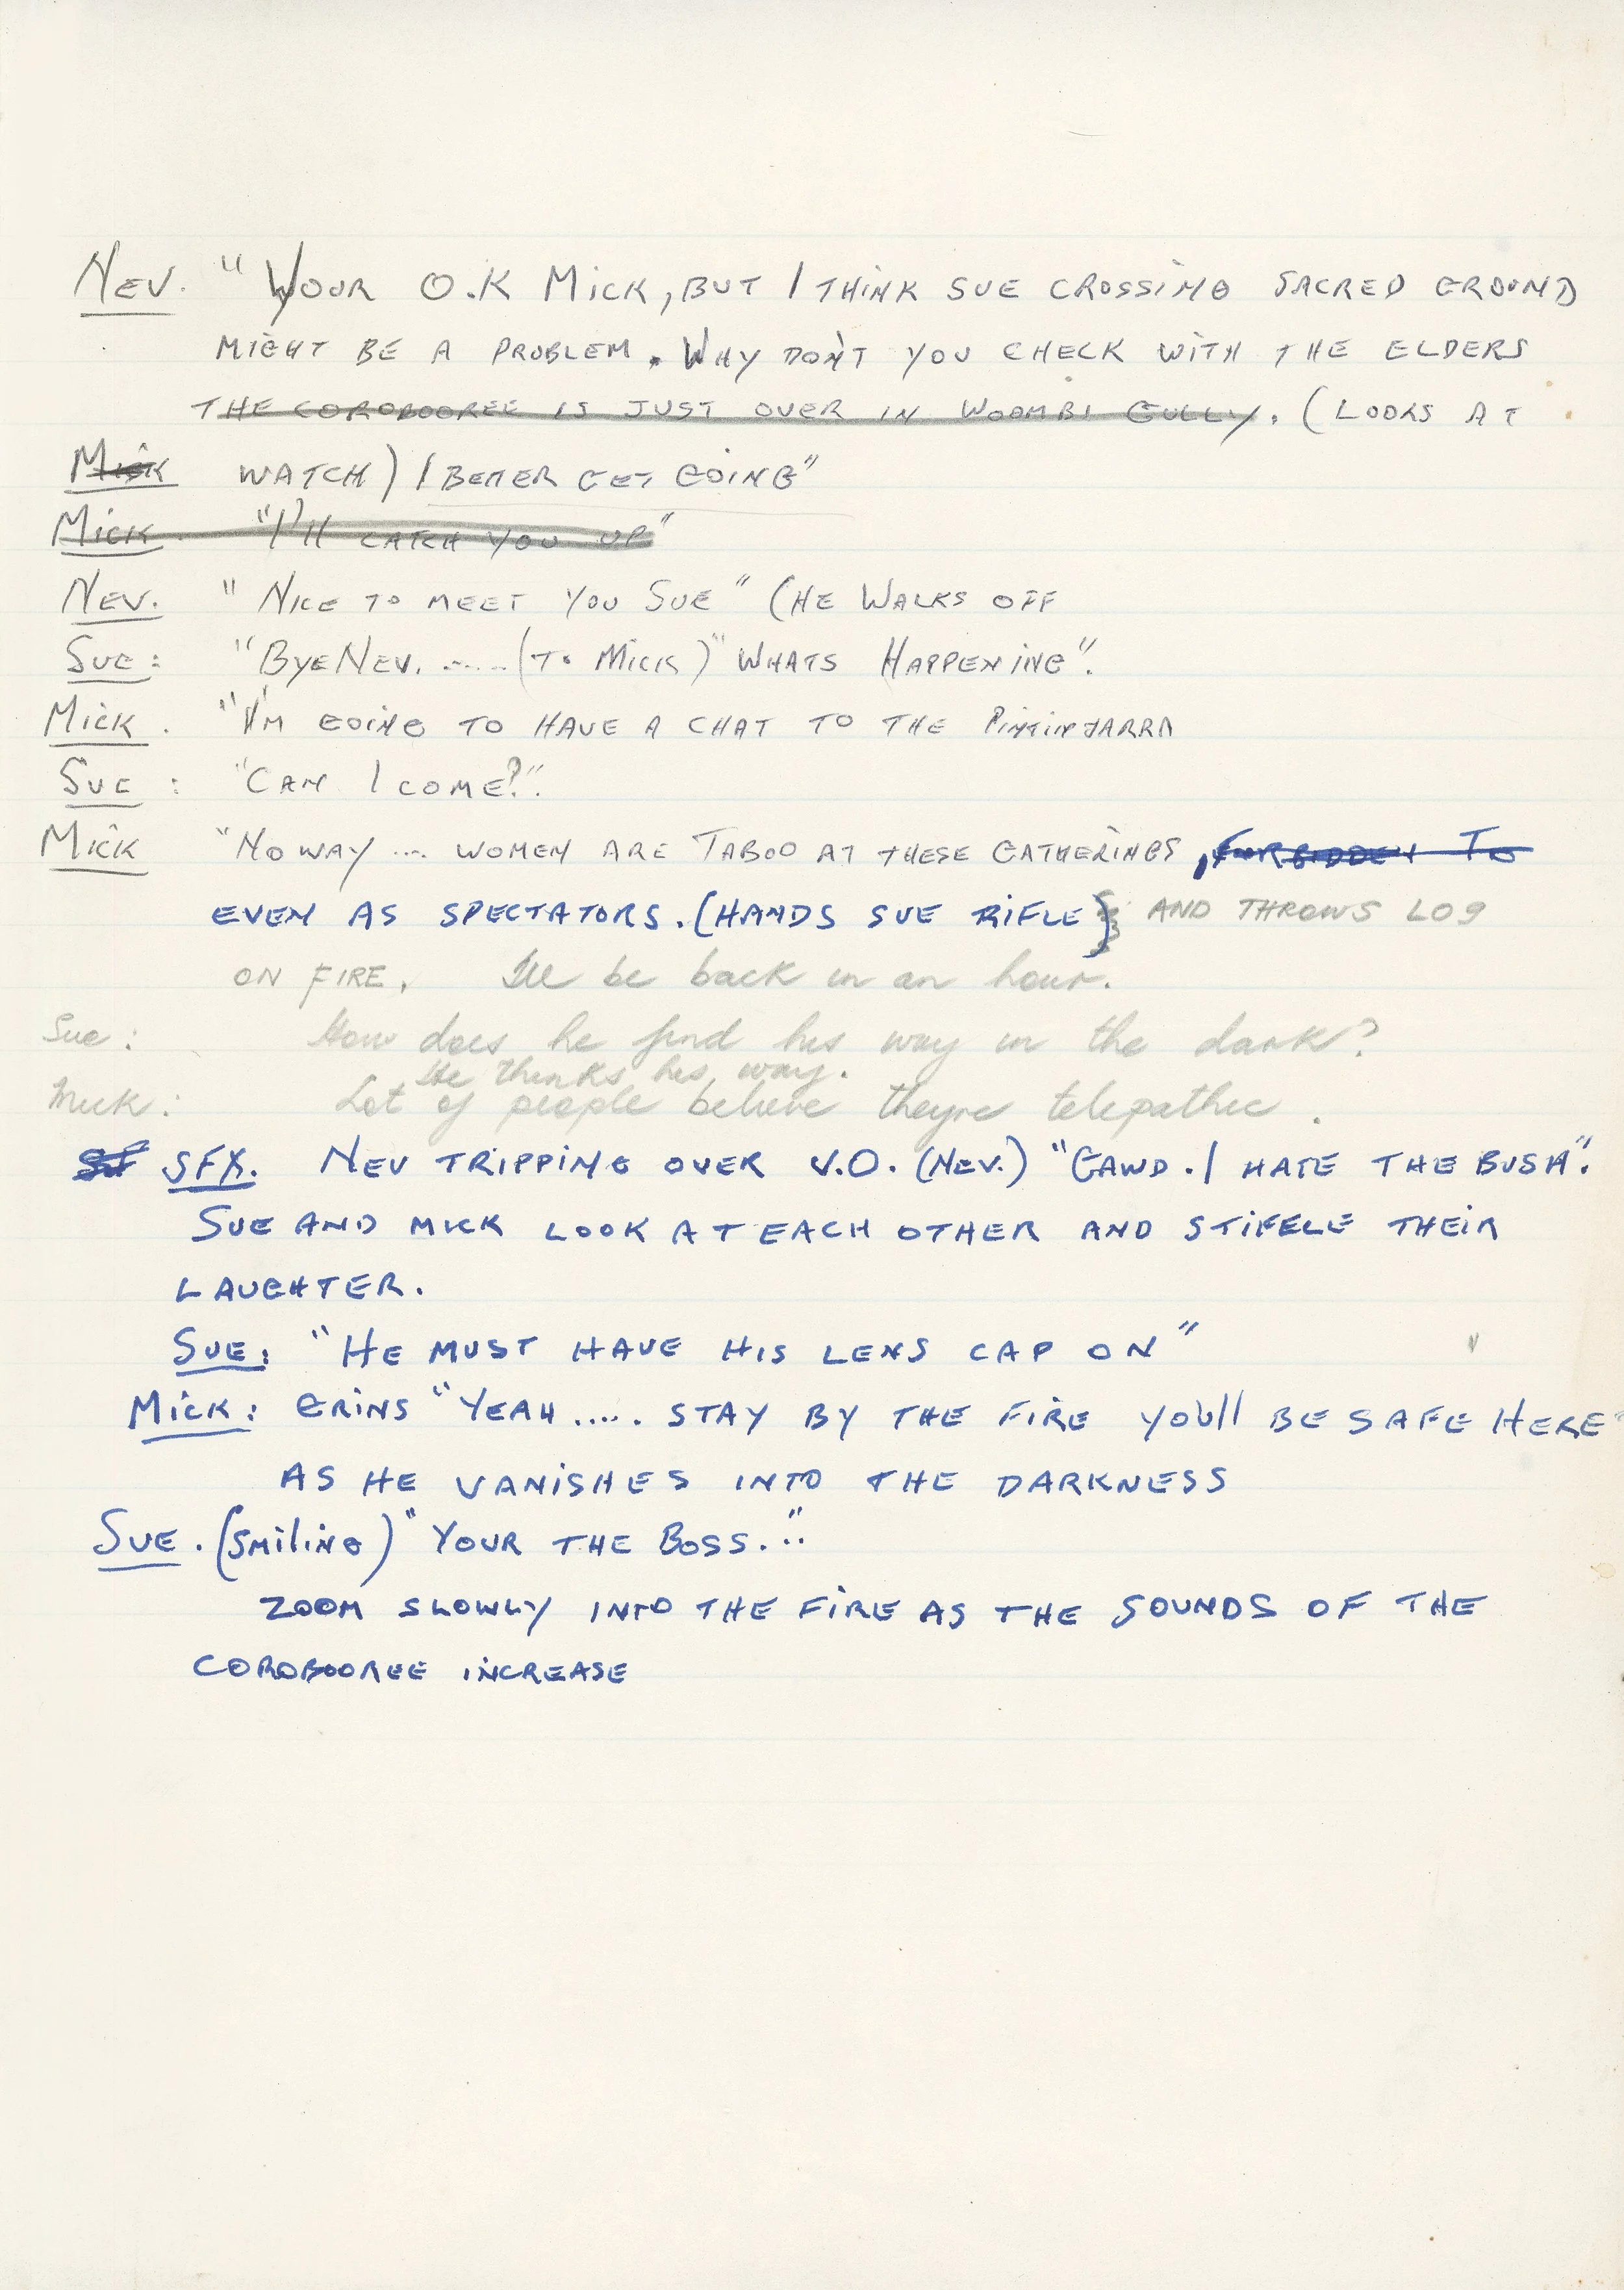 NEV. " YOUR O.K MICK, BUT I THINK SUE CROSSING SACRED GROUND
MIGHT BE A PROBLEM. WHY DON'T YOU CHECK WITH THE ELDERS
THE COROBOOREE IS JUST OVER IN WOOMBI GULLY. (LOOKS AT
MICK WATCH) I BETTER GET GOING"
MICK. "I'll CATCH YOU UP"
NEV. " NICE TO MEET YOU SUE" (HE WALKS OFF
SUE: "BYE NEV. ......(TO MICK)" WHATS HAPPENING".
MICK. "I'M GOING TO HAVE A CHAT TO THE PINTINJARRA
SUE : "CAN I COME?".
MICK "NO WAY ... WOMEN ARE TABOO AT THESE GATHERINGS, FORBIDDEN TO
EVEN AS SPECTATORS. (HANDS SUE RIFLE) AND THROWS LOG
ON FIRE. Ill be back in an hour.
Sue : How does he find his way in the dark?
He thinks his way.
Mick : Lot of people believe theyre telepathic .
SF SFX. NEV TRIPPING OVER V.O. (NEV.) "GAWD. I HATE THE BUSH".
SUE AND MICK LOOK AT EACH OTHER AND STIFELE THEIR
LAUGHTER.
SUE: "HE MUST HAVE HIS LENS CAP ON"
MICK: GRINS "YEAH ..... STAY BY THE FIRE YOU'll BE SAFE HERE"
AS HE VANISHES INTO THE DARKNESS
SUE. (SMILING) "YOUR THE BOSS.."
ZOOM SLOWLY INTO THE FIRE AS THE SOUNDS OF THE
COROBOOREE INCREASE